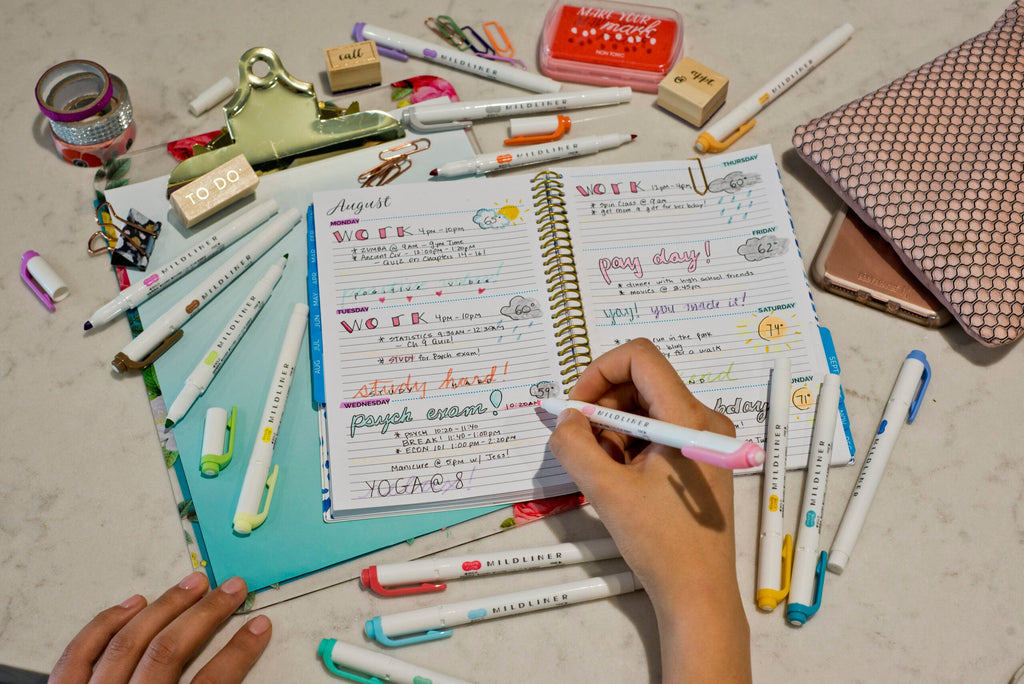 MAKE YOUR
mark
NON TOXIC
call
@ appt.
MILDLINER
MILDLINER
MILDLINER
MILDLINER
TO DO
MILDLINER
MILDLINER
MILDLINER
MILDLINER
August
MONDAY
WORK 4pm-10pm
65°
* ZUMBA @ 9AM -
* Ancient Civ - 12:00PM - 1:20PM
- Quiz on Chapters 14-16!
positive vibes!
TUESDAY
WORK 4pm-10pm
60°
* STATISTICS 9:30AM-12:30AM
Ch 9 Quiz!
* STUDY for Psych exam!
study hard!
WEDNESDAY
59°
psych exam! 10:20AM
* PSYCH 10:20-11:40
BREAK! 11:40-1:00PM
* ECON 101 1:00PM-2:20PM
Manicure @ 5PM w/ Jess!
YOGA @ 8
THURSDAY
WORK 12pm-4pm
60°
* Spin Class @ 9am
* get mom a gift for her bday!
FRIDAY
pay day!
62°
* dinner with high school friends
* movies @ 8:45pm
yay! you made it!
SATURDAY
74°
run in the park
blog
for a walk
SUNDAY
71°
bday
JAN
FEB
MAR
APR
MAY
JUN
JUL
AUG
SEPT
MILDLINER
MILDLINER
MILDLINER
MILDLINER
MILDLINER
MILDLINER